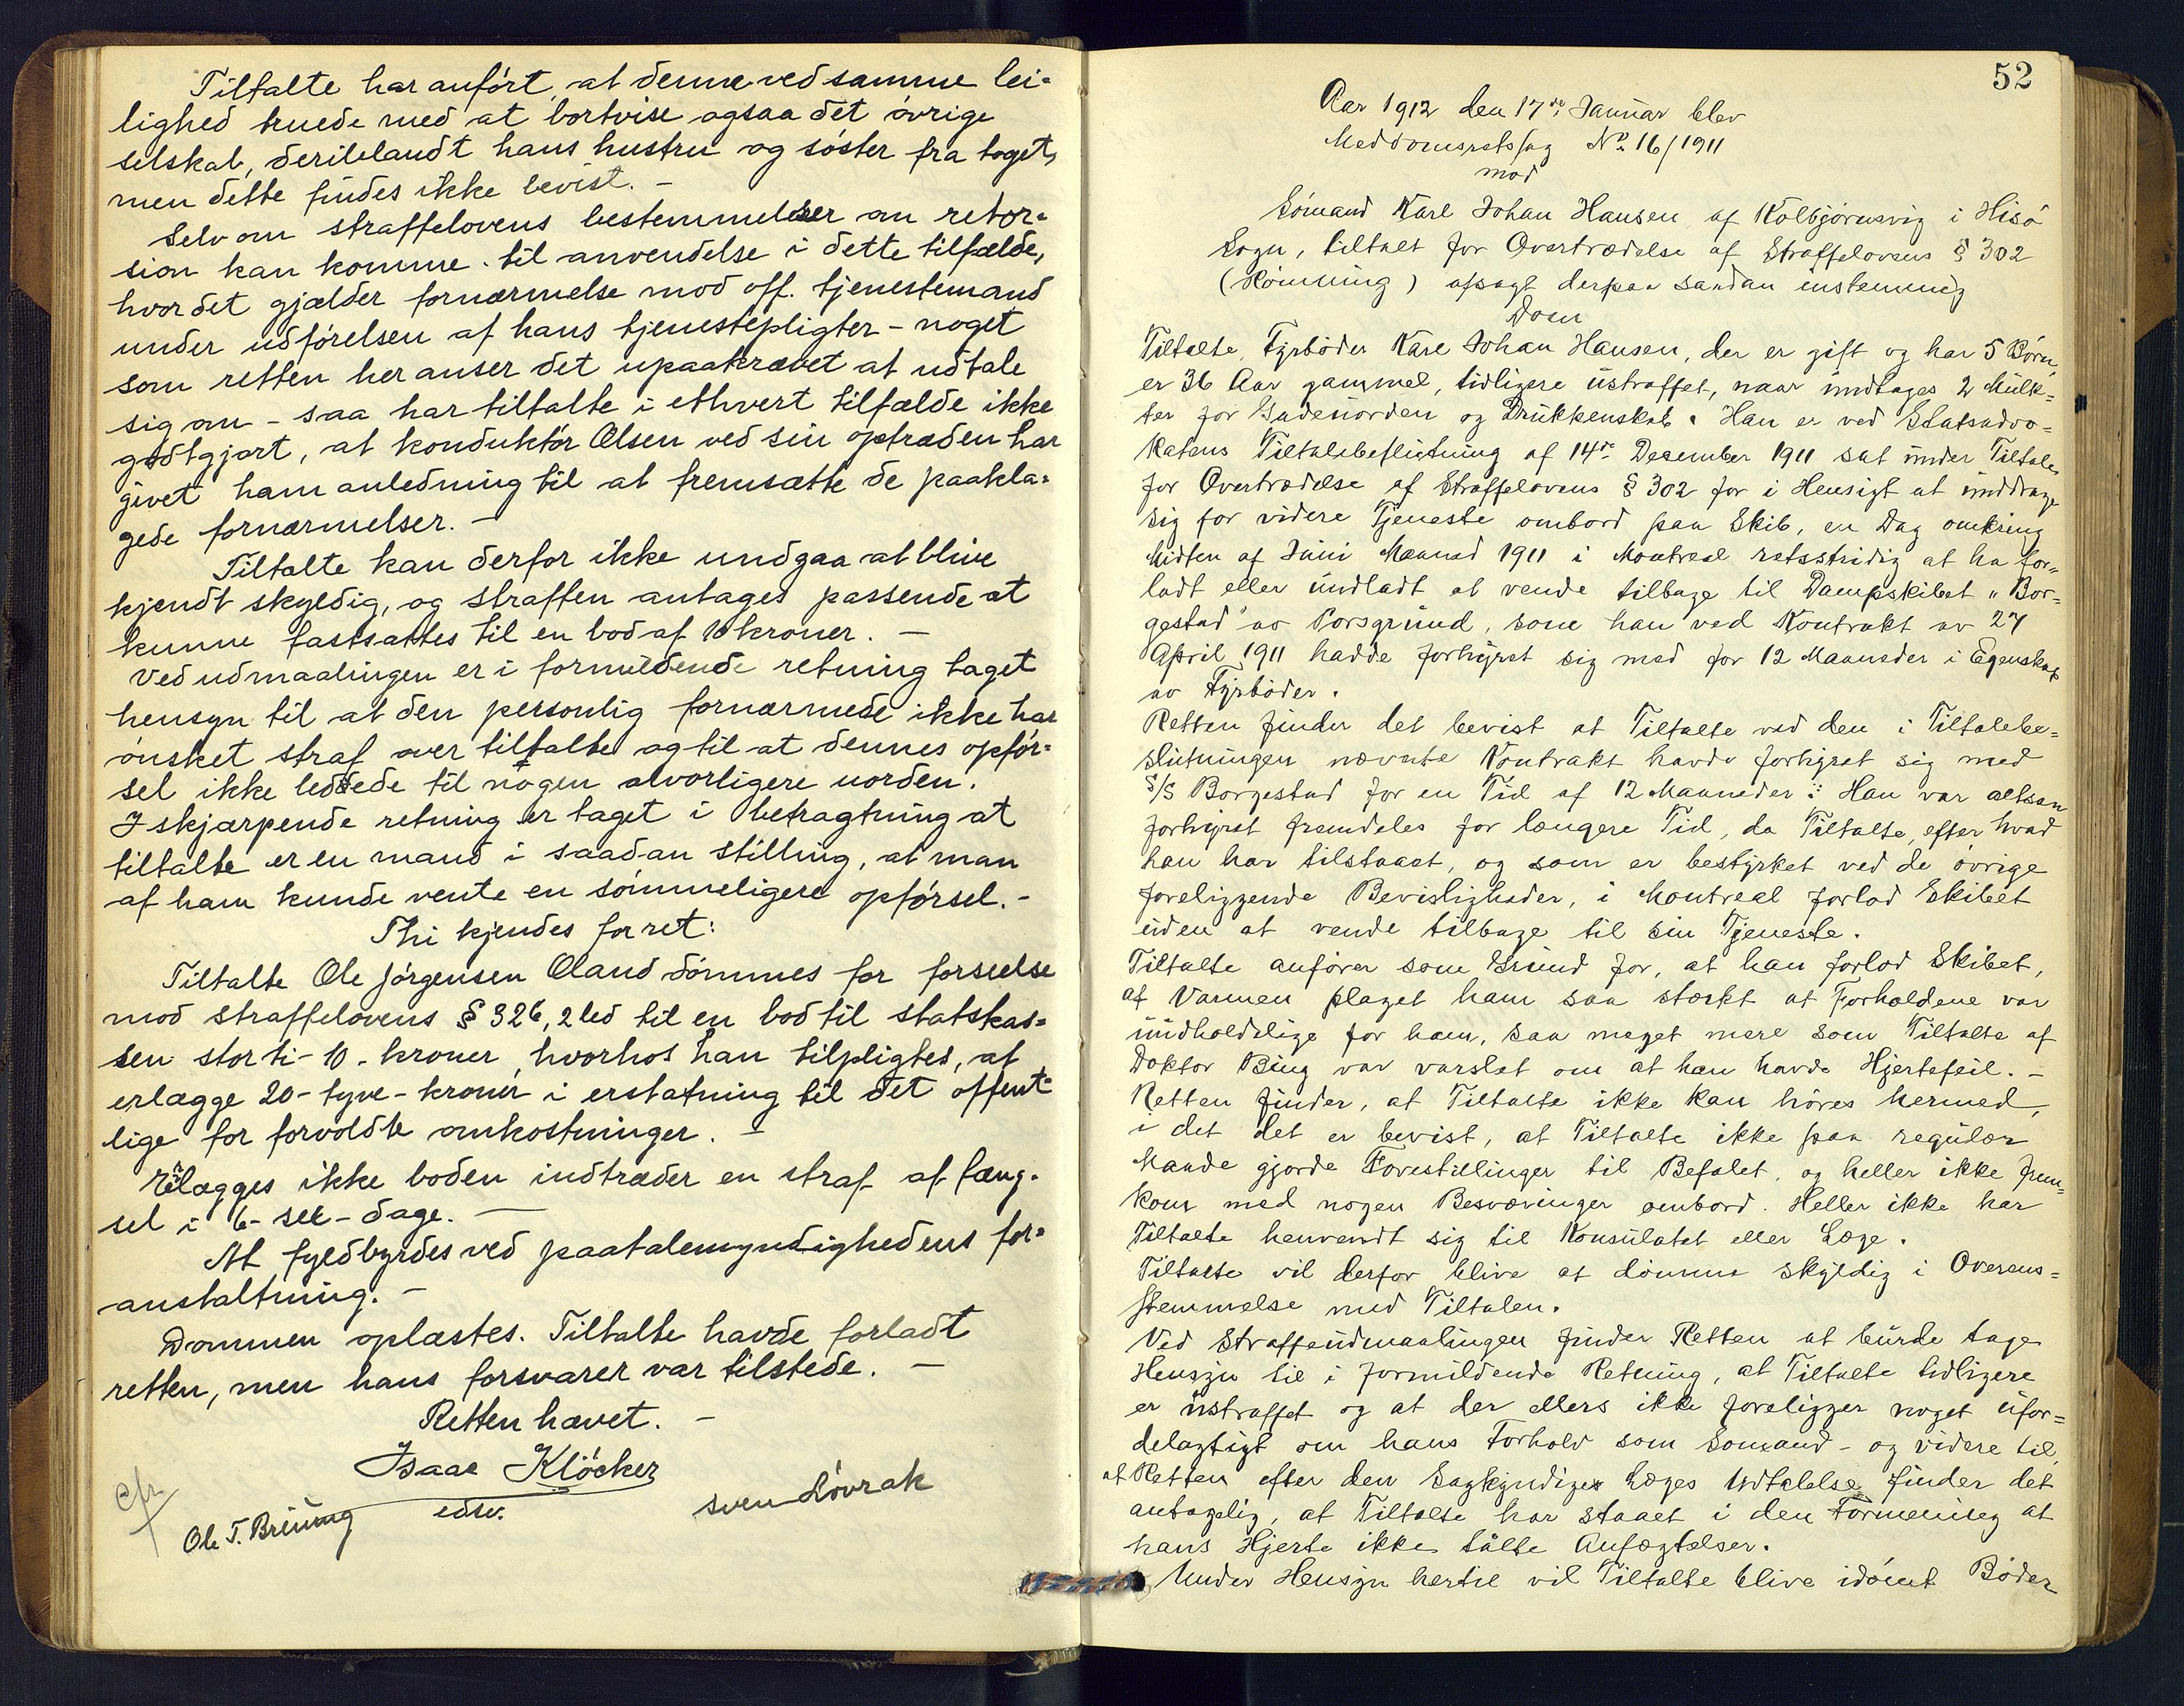 Tiltalte har anført, at denne ved samme lei-
lighed truede med at bortvise ogsaa det øvrige
selskab, deriblandt hans hustru og søster fra toget,
men dette findes ikke bevist. –
Selv om straffelovens bestemmelser om retor-
sion kan komme til anvendelse i dette tilfælde,
hvor det gjælder fornærmelse mod off. tjenestemand
under udførelsen af hans tjenestepligter – noget
som retten her anser det upaakrævet at udtale
sig om – saa har tiltalte i ethvert tilfælde ikke
godtgjort, at konduktør Olsen ved sin optræden har
givet ham anledning til at fremsætte de paakla-
gede fornærmelser. –
Tiltalte kan derfor ikke undgaa at blive
kjendt skyldig, og straffen antages passende at
kunne fastsættes til en bod af 10 kroner. –
Ved udmaalingen er i formildende retning taget
hensyn til at den personlig fornærmede ikke har
ønsket straf over tiltalte og til at dennes opfør-
sel ikke ledede til nogen alvorligere uorden.
I skjærpende retning er taget i betragtning at
tiltalte er en mand i saadan stilling, at man
af ham kunde vente en sømmeligere opførsel. –
Thi kjendes for ret:
Tiltalte Ole Jørgensen Oland dømmes for forseelse
mod straffelovens § 326, 2 led til en bod til statskas-
sen stor ti – 10 – kroner, hvorhos han tilpligtes, at
erlægge 20 – tyve – kroner i erstatning til det offent-
lige for forvoldte omkostninger. –
Erlægges ikke boden indtræder en straf af fæng-
sel i 6 – sex – dage. –
At fyldbyrdes ved paatalemyndighedens for-
anstaltning. –
Dommen oplæstes. Tiltalte havde forladt
retten, men hans forsvarer var tilstede. –
Retten hævet. –
Isaac Klöcker
edsv.
Sven Løvrak
Ole T. Breiung
cfr
52
Aar 1912 den 17de Januar blev
Meddomsretssag No. 16/1911
mod
Sømand Karl Johan Hansen af Kolbjørnsvig i Hisø
Sogn, tiltalt for Overtrædelse af Straffelovens § 302
(Rømning) afsagt derpaa saadan enstemmig
Dom
Tiltalte, Fyrbøder Karl Johan Hansen, der er gift og har 5 Børn,
er 36 Aar gammel, tidligere ustraffet, naar undtages 2 Mulk-
ter for Gadeuorden og Drukkenskab. Han er ved Statsadvo-
katens Tiltalebeslutning af 14de Desember 1911 sat under Tiltale
for Overtrædelse af Straffelovens § 302 for i Hensigt at unddrage
sig for videre Tjeneste ombord paa Skib, en Dag omkring
Midten af Juni Maaned 1911 i Montreal retsstridig at ha for-
ladt eller undladt at vende tilbage til Dampskibet "Bor-
gestad" av Porsgrund, som han ved Kontrakt av 27
April 1911 hadde forhyret sig med for 12 Maaneder i Egenskab
av Fyrbøder.
Retten finder det bevist at Tiltalte ved den i Tiltalebe-
slutningen nævnte Kontrakt havde forhyret sig med
S/S Borgestad for en Tid af 12 Maaneder. Han var altsaa
forhyret fremdeles for længere Tid, da Tiltalte, efter hvad
han har tilstaaet, og som er bestyrket ved de øvrige
foreliggende Bevisligheder, i Montreal forlod Skibet
uden at vende tilbage til sin Tjeneste.
Tiltalte anfører som Grund for, at han forlod Skibet,
at Varmen plaget ham saa stærkt at Forholdene var
uudholdelige for ham, saa meget mere som Tiltalte af
Doktor Bing var varslet om at han havde Hjertefeil. –
Retten finder, at Tiltalte ikke kan høres hermed,
i det det er bevist, at Tiltalte ikke paa regulær
Maade gjorde Forestillinger til Befalet, og heller ikke frem-
kom med nogen Besværinger ombord. Heller ikke har
Tiltalte henvendt sig til Konsulatet eller Læge.
Tiltalte vil derfor blive at dømme skyldig i Overens-
stemmelse med Tiltalen.
Ved Straffeudmaalingen finder Retten at burde tage
Hensyn til i formildende Retning, at Tiltalte tidligere
er ustraffet og at der ellers ikke foreligger noget ufor-
delagtigt om hans Forhold som Sømand – og videre til,
at Retten efter den Sagkyndiges Læges Udtalelse finder det
antagelig, at Tiltalte har staaet i den Formening at
hans Hjerte ikke tålte Anfægtelser.
Under Hensyn hertil vil Tiltalte blive idømt Bøder